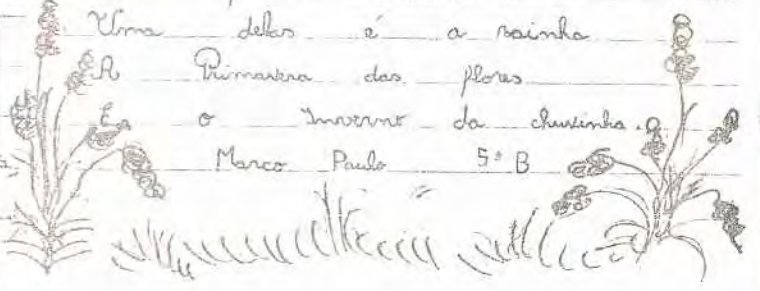 Uma delas é a rainha
A Primavera das flores
E o Inverno da chuvinha.
Marco Paulo 5º B